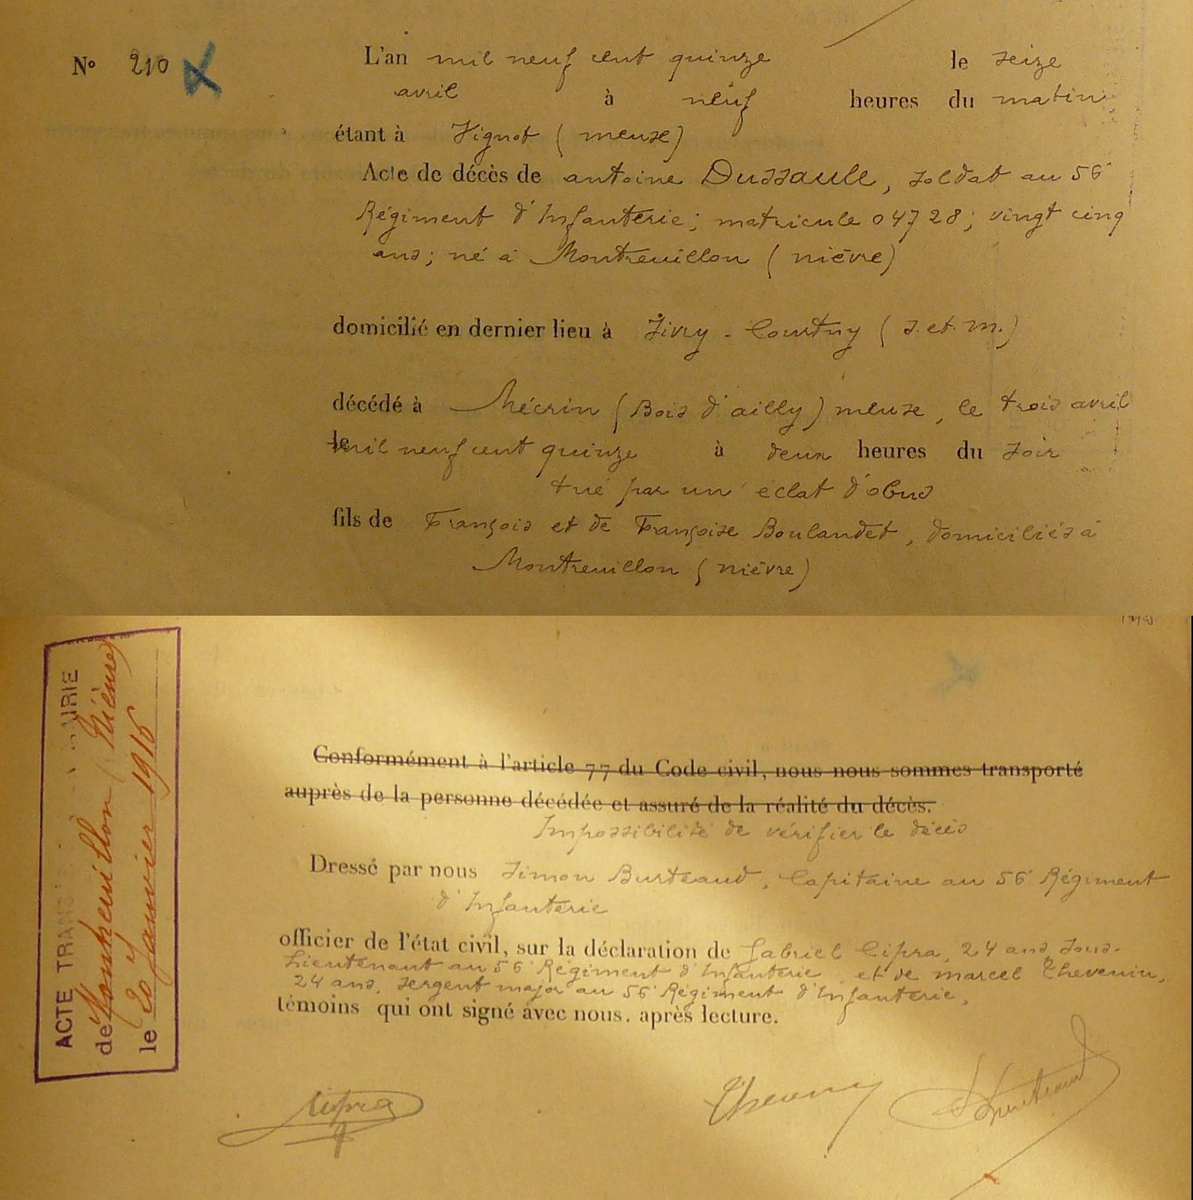 N° 210
L'an mil neuf cent quinze le seize
avril à neuf heures du matin
étant à Vignot (meuse)
Acte de décès de antoine Dussaule, soldat au 56
Régiment d'Infanterie; matricule 04728; vingt cinq
ans; né à Montreuillon (nièvre)
domicilié en dernier lieu à Ivry - Courtry (S. et. M.)
décédé à Mécrin (Bois d'ailly) meuse, le trois avril
le mil neuf cent quinze à deux heures du soir
tué par un éclat d'obus
fils de François et de Françoise Boulandet, domiciliés à
Montreuillon (nièvre)
Conformément à l'article 77 du Code civil, nous nous sommes transporté
auprès de la personne décédée et assuré de la réalité du décès.
Impossibilité de vérifier le décès
Dressé par nous Simon Burteaud, Capitaine au 56 Régiment
d'Infanterie
officier de l'état civil, sur la déclaration de Gabriel Cipra, 24 ans, sous-
Lieutenant au 56 Régiment d'Infanterie et de marcel Thevenin,
24 ans, sergent major au 56 Régiment d'Infanterie,
témoins qui ont signé avec nous. après lecture.
ACTE
de Montreuillon (Nièvre)
le 20 Janvier 1916